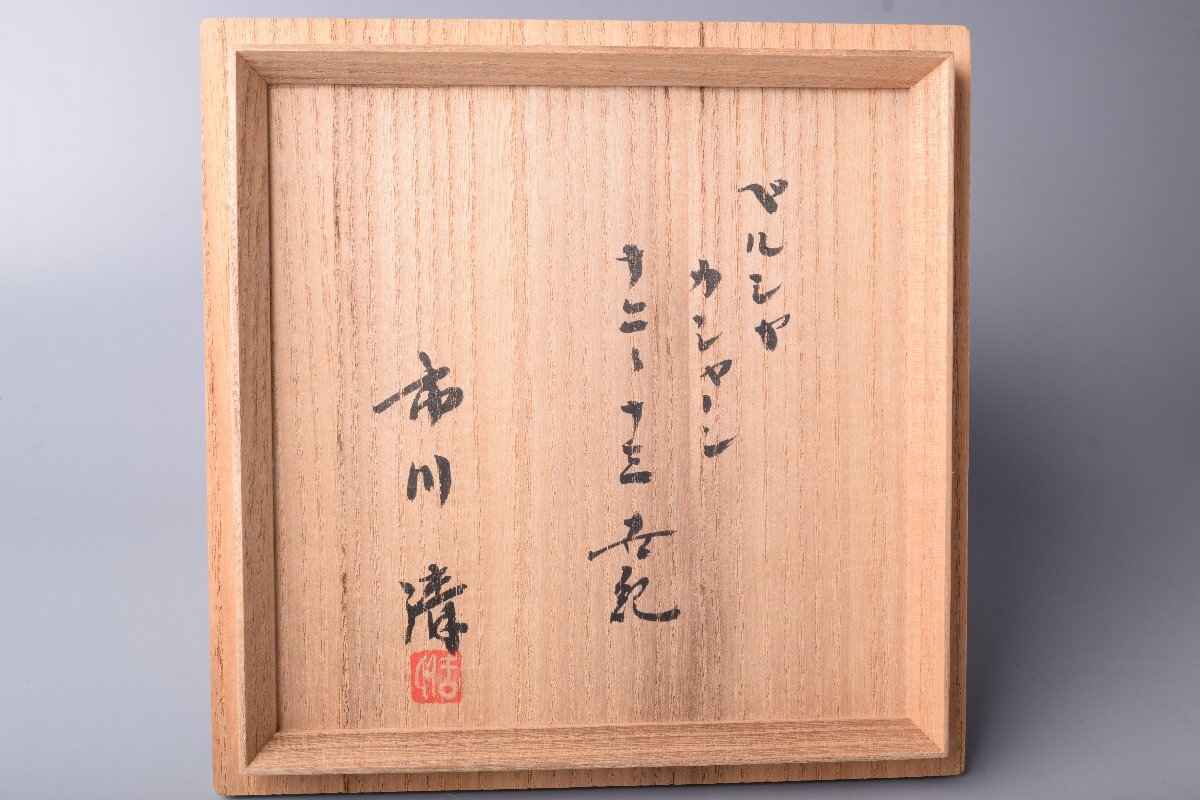 ペルシャ
カシャーン
十二〜十三世紀
市川清